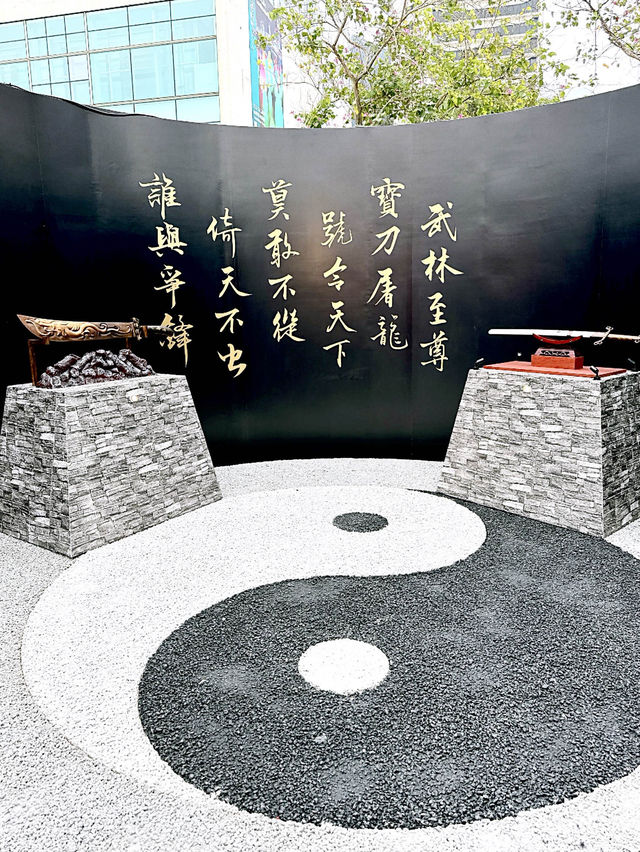 武林至尊
寶刀屠龍
號令天下
莫敢不從
倚天不出
誰與爭鋒